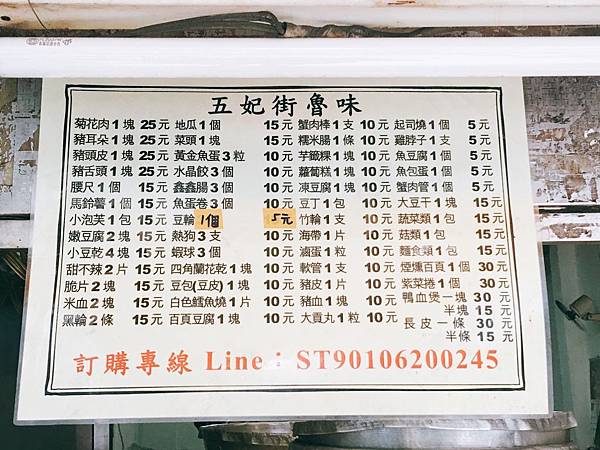 五妃街魯味
菊花肉1塊 25元 地瓜1個 15元 蟹肉棒1支 10元 起司燒1個 5元
豬耳朵1塊 25元 菜頭1塊 15元 糯米腸1條 10元 雞脖子1支 5元
豬頭皮1塊 25元 黃金魚蛋3粒 10元 芋籤粿1塊 10元 魚豆腐1個 5元
豬舌頭1塊 25元 水晶餃3個 10元 蘿蔔糕1塊 10元 魚包蛋1個 5元
腰尺1個 15元 鑫鑫腸3個 10元 凍豆腐1塊 10元 蟹肉管1個 5元
馬鈴薯1個 15元 魚蛋卷3個 10元 豆丁1包 10元 大豆干1塊 15元
小泡芙1包 15元 豆輪1個 5元 竹輪1支 10元 蔬菜類1包 15元
嫩豆腐2塊 15元 熱狗3支 10元 海帶1片 10元 菇類1包 15元
小豆乾4塊 15元 蝦球3個 10元 滷蛋1粒 10元 麵食類1包 15元
甜不辣2片 15元 四角蘭花乾1塊 10元 軟管1支 10元 煙燻百頁1個 30元
脆片2塊 15元 豆包(豆皮)1塊 10元 豬皮1片 10元 紫菜捲1個 30元
米血2塊 15元 白色鱈魚燒1片 10元 豬血1塊 10元 鴨血煲一塊 30元
半塊 15元
黑輪2條 15元 百頁豆腐1塊 10元 大貢丸1粒 10元 長皮一條 30元
半條 15元
訂購專線 Line：ST90106200245